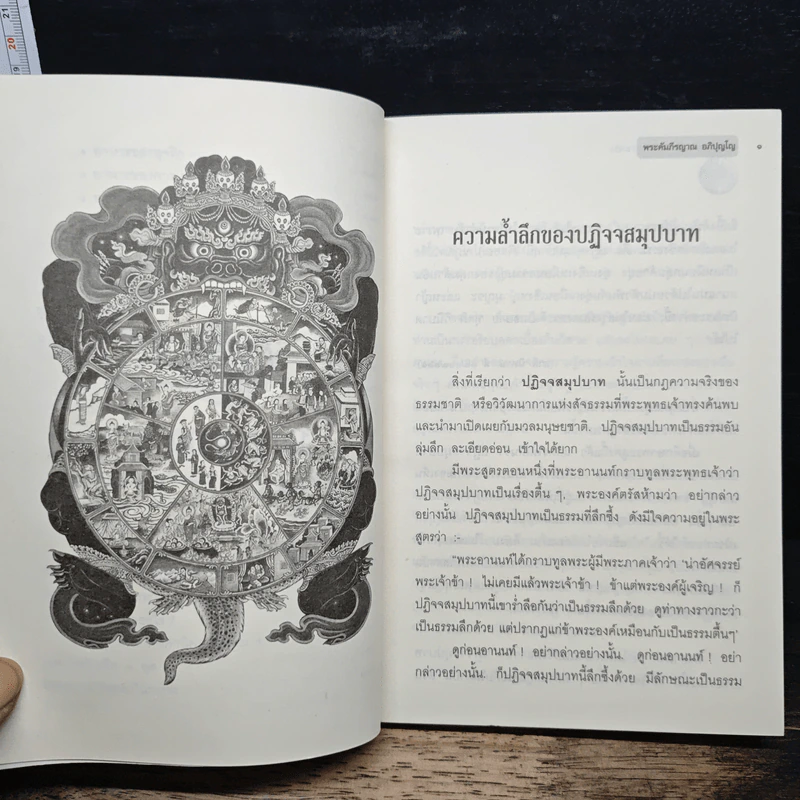 19
20
21
พระคัมภีรญาณ อภิปุญโญ ๑
ความล้ำลึกของปฏิจจสมุปบาท
สิ่งที่เรียกว่า ปฏิจจสมุปบาท นั้นเป็นกฎความจริงของ
ธรรมชาติ หรือวิวัฒนาการแห่งสัจธรรมที่พระพุทธเจ้าทรงค้นพบ
และนำมาเปิดเผยกับมวลมนุษยชาติ. ปฏิจจสมุปบาทเป็นธรรมอัน
ลุ่มลึก ละเอียดอ่อน เข้าใจได้ยาก
มีพระสูตรตอนหนึ่งที่พระอานนท์กราบทูลพระพุทธเจ้าว่า
ปฏิจจสมุปบาทเป็นเรื่องตื้น ๆ. พระองค์ตรัสห้ามว่า อย่ากล่าว
อย่างนั้น ปฏิจจสมุปบาทเป็นธรรมที่ลึกซึ้ง ดังมีใจความอยู่ในพระ
สูตรว่า :-
"พระอานนท์ได้กราบทูลพระผู้มีพระภาคเจ้าว่า 'น่าอัศจรรย์
พระเจ้าข้า ! ไม่เคยมีแล้วพระเจ้าข้า ! ข้าแต่พระองค์ผู้เจริญ ! ก็
ปฏิจจสมุปบาทนี้เขาร่ำลือกันว่าเป็นธรรมลึกด้วย ดูท่าทางราวกะว่า
เป็นธรรมลึกด้วย แต่ปรากฏแก่ข้าพระองค์เหมือนกับเป็นธรรมตื้นๆ'
ดูก่อนอานนท์ ! อย่ากล่าวอย่างนั้น. ดูก่อนอานนท์ ! อย่า
กล่าวอย่างนั้น. ก็ปฏิจจสมุปบาทนี้ลึกซึ้งด้วย มีลักษณะเป็นธรรม